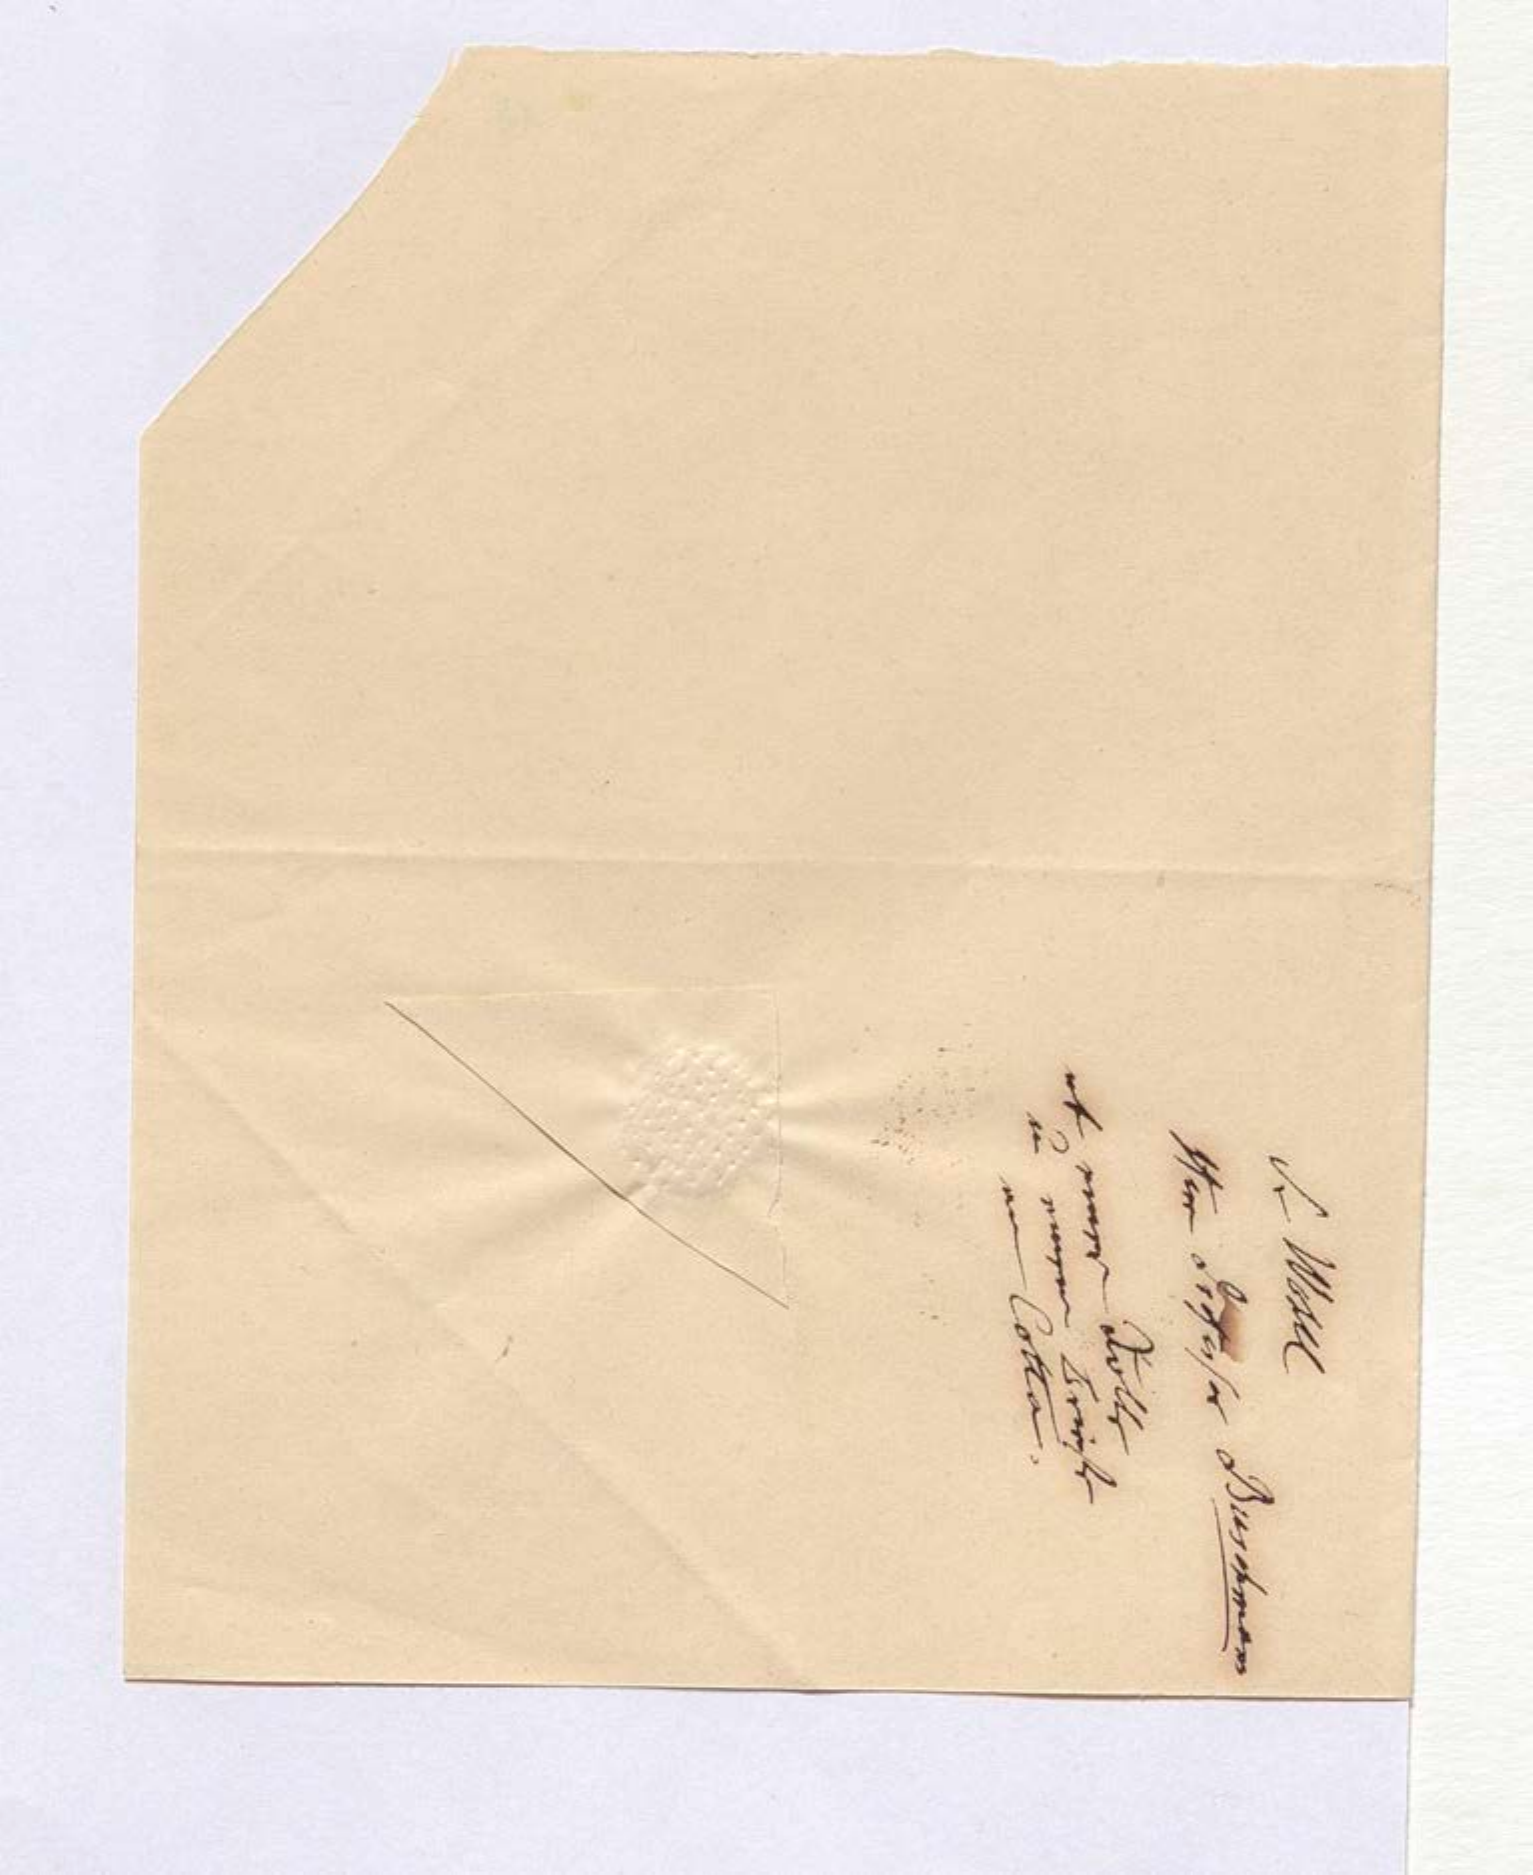 Sr Wohl
Herrn Professor Buschmann
mit einer Rolle
u einem Briefe
an Cotta.